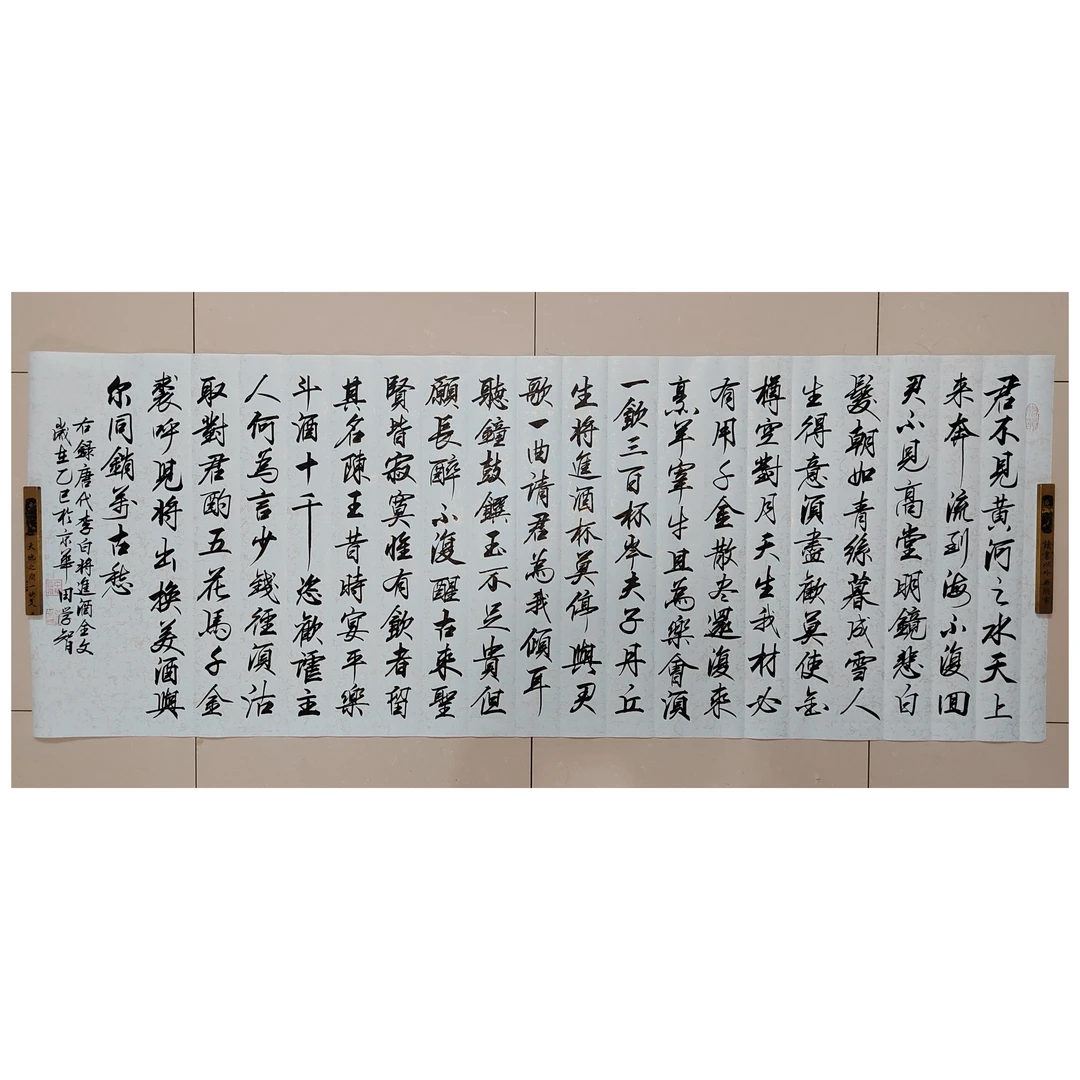 君不見黃河之水天上
来奔流到海不復回
君不見高堂明鏡悲白
髮朝如青絲暮成雪人
生得意須盡歡莫使金
樽空對月天生我材必
有用千金散尽還復來
烹羊宰牛且為樂會須
一飲三百杯岑夫子丹丘
生將進酒杯莫停與君
歌一曲請君為我傾耳
聽鐘鼓饌玉不足貴但
願長醉不復醒古來聖
賢皆寂寞惟有飲者留
其名陳王昔時宴平樂
斗酒十千恣歡謔主
人何為言少錢徑須沽
取對君酌五花馬千金
裘呼兒將出換美酒與
尔同銷萬古愁
右録唐代李白將進酒全文
歲在乙巳於京華 田学智